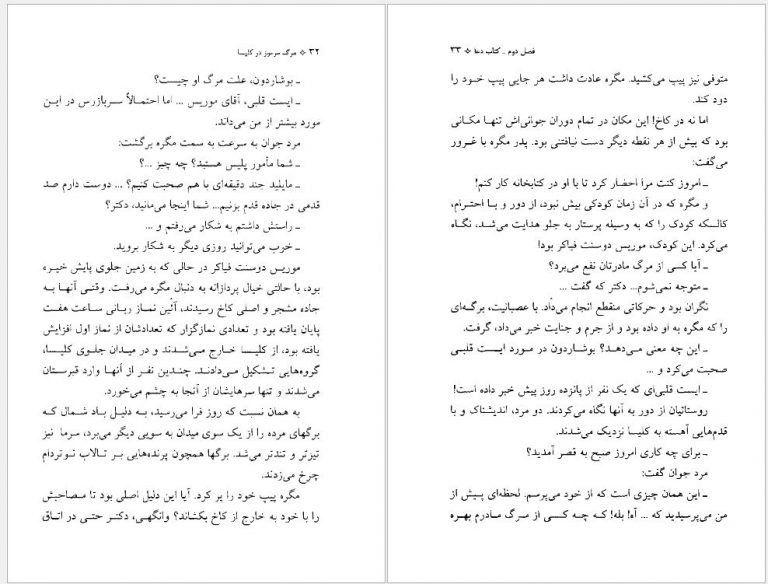 ۳۲ ❖ مرگ مرموز در کلیسا
ـ بوشاردون، علت مرگ او چیست؟
ـ ایست قلبی، آقای موریس ... اما احتمالاً سربازرس در این
مورد بیشتر از من می‌داند.
مرد جوان به سرعت به سمت مگره برگشت:
ـ شما مأمور پلیس هستید؟ چه چیز ...؟
ـ مایلید چند دقیقه‌ای با هم صحبت کنیم؟ ... دوست دارم صد
قدمی در جاده قدم بزنیم... شما اینجا می‌مانید، دکتر؟
ـ راستش داشتم به شکار می‌رفتم و ...
ـ خرب می‌توانید روزی دیگر به شکار بروید.
موریس دوسنت فیاکر در حالی که به زمین جلوی پایش خیره
بود، با حالتی خیال پردازانه به دنبال مگره می‌رفت. وقتی آنها به
جاده مشجر و اصلی کاخ رسیدند، آئین نماز ربانی ساعت هفت
پایان یافته بود و تعدادی نمازگزار که تعدادشان از نماز اول افزایش
یافته بود، از کلیسا خارج می‌شدند و در میدان جلوی کلیسا،
گروه‌هایی تشکیل می‌دادند. چندین نفر از آنها وارد قبرستان
می‌شدند و تنها سرهایشان از آنجا به چشم می‌خورد.
به همان نسبت که روز فرا می‌رسید، به دلیل باد شمال که
برگهای مرده را از یک سوی میدان به سویی دیگر می‌برد، سرما نیز
تیزتر و تندتر می‌شد. برگها همچون پرنده‌هایی بر تالاب نوتردام
چرخ می‌زدند.
مگره پیپ خود را پر کرد. آیا این دلیل اصلی بود تا مصاحبش
را با خود به خارج از کاخ بکشاند؟ وانگهی، دکتر حتی در اتاق
فصل دوم ـ کتاب دعا ❖ ۳۳
متوفی نیز پیپ می‌کشید. مگره عادت داشت هر جایی پیپ خود را
دود کند.
اما نه در کاخ! این مکان در تمام دوران جوانی‌اش تنها مکانی
بود که بیش از هر نقطه دیگر دست نیافتنی بود. پدر مگره با غرور
می‌گفت:
ـ امروز کنت مرا احضار کرد تا با او در کتابخانه کار کنم!
و مگره که در آن زمان کودکی بیش نبود، از دور و با احترام،
کالسکه کودک را که به وسیله پرستار به جلو هدایت می‌شد، نگاه
می‌کرد. این کودک، موریس دوسنت فیاکر بود!
ـ آیا کسی از مرگ مادرتان نفع می‌برد؟
ـ متوجه نمی‌شوم... دکتر که گفت ...
نگران بود و حرکاتی منقطع انجام می‌داد. با عصبانیت، برگه‌ای
را که مگره به او داده بود و از جرم و جنایت خبر می‌داد، گرفت.
ـ این چه معنی می‌دهد؟ بوشاردون در مورد ایست قلبی
صحبت می‌کرد و ...
ـ ایست قلبی‌ای که یک نفر از پانزده روز پیش خبر داده است!
روستائیان از دور به آنها نگاه می‌کردند. دو مرد، اندیشناک و با
قدم‌هایی آهسته به کلیسا نزدیک می‌شدند.
ـ برای چه کاری امروز صبح به قصر آمدید؟
مرد جوان گفت:
ـ این همان چیزی است که از خود می‌پرسم. لحظه‌ای پیش از
من می‌پرسیدید که ... آه! بله! که چه کسی از مرگ مادرم بهره